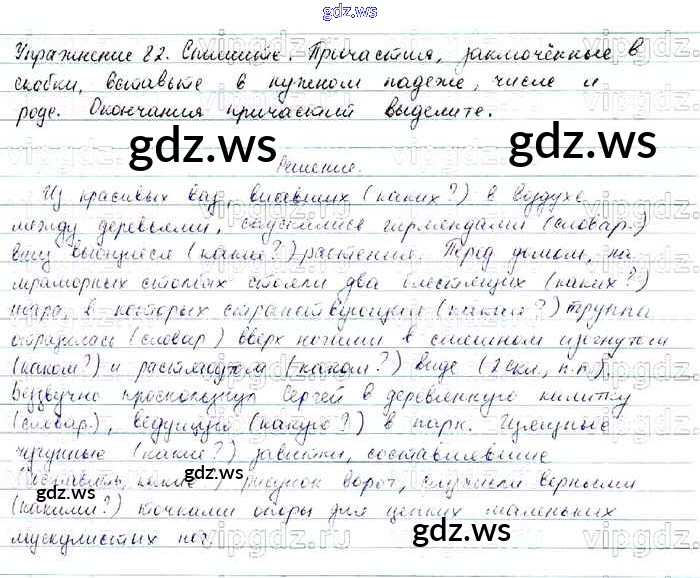 gdz.ws
Упражнение 82. Спишите. Причастия, заключённые в
скобки, вставьте в нужном падеже, числе и
роде. Окончания причастий выделите.
gdz.ws gdz.ws
Решение.
Из красивых ваз, висевших (каких?) в воздухе
между деревьями, спустились гирляндами (словар.)
вниз вьющиеся (какие?) растения. Перед домом, на
мраморных столбах стояли два блестящих (каких?)
шара, в которых странствующая (какая?) труппа
отразилась (словар) вверх ногами в смешном изогнутом
(каком?) и растянутом (каком?) виде (2 скл., п.п.).
Беззвучно проскользнул Сергей в деревянную калитку
(словар.), ведущую (какую?) в парк. Изящные
чугунные (какие?) завитки, составлявшие
gdz.ws gdz.ws
(составлять, какие?) рисунок ворот, служили верными
(какими?) точками опоры для цепких маленьких
мускулистых ног.